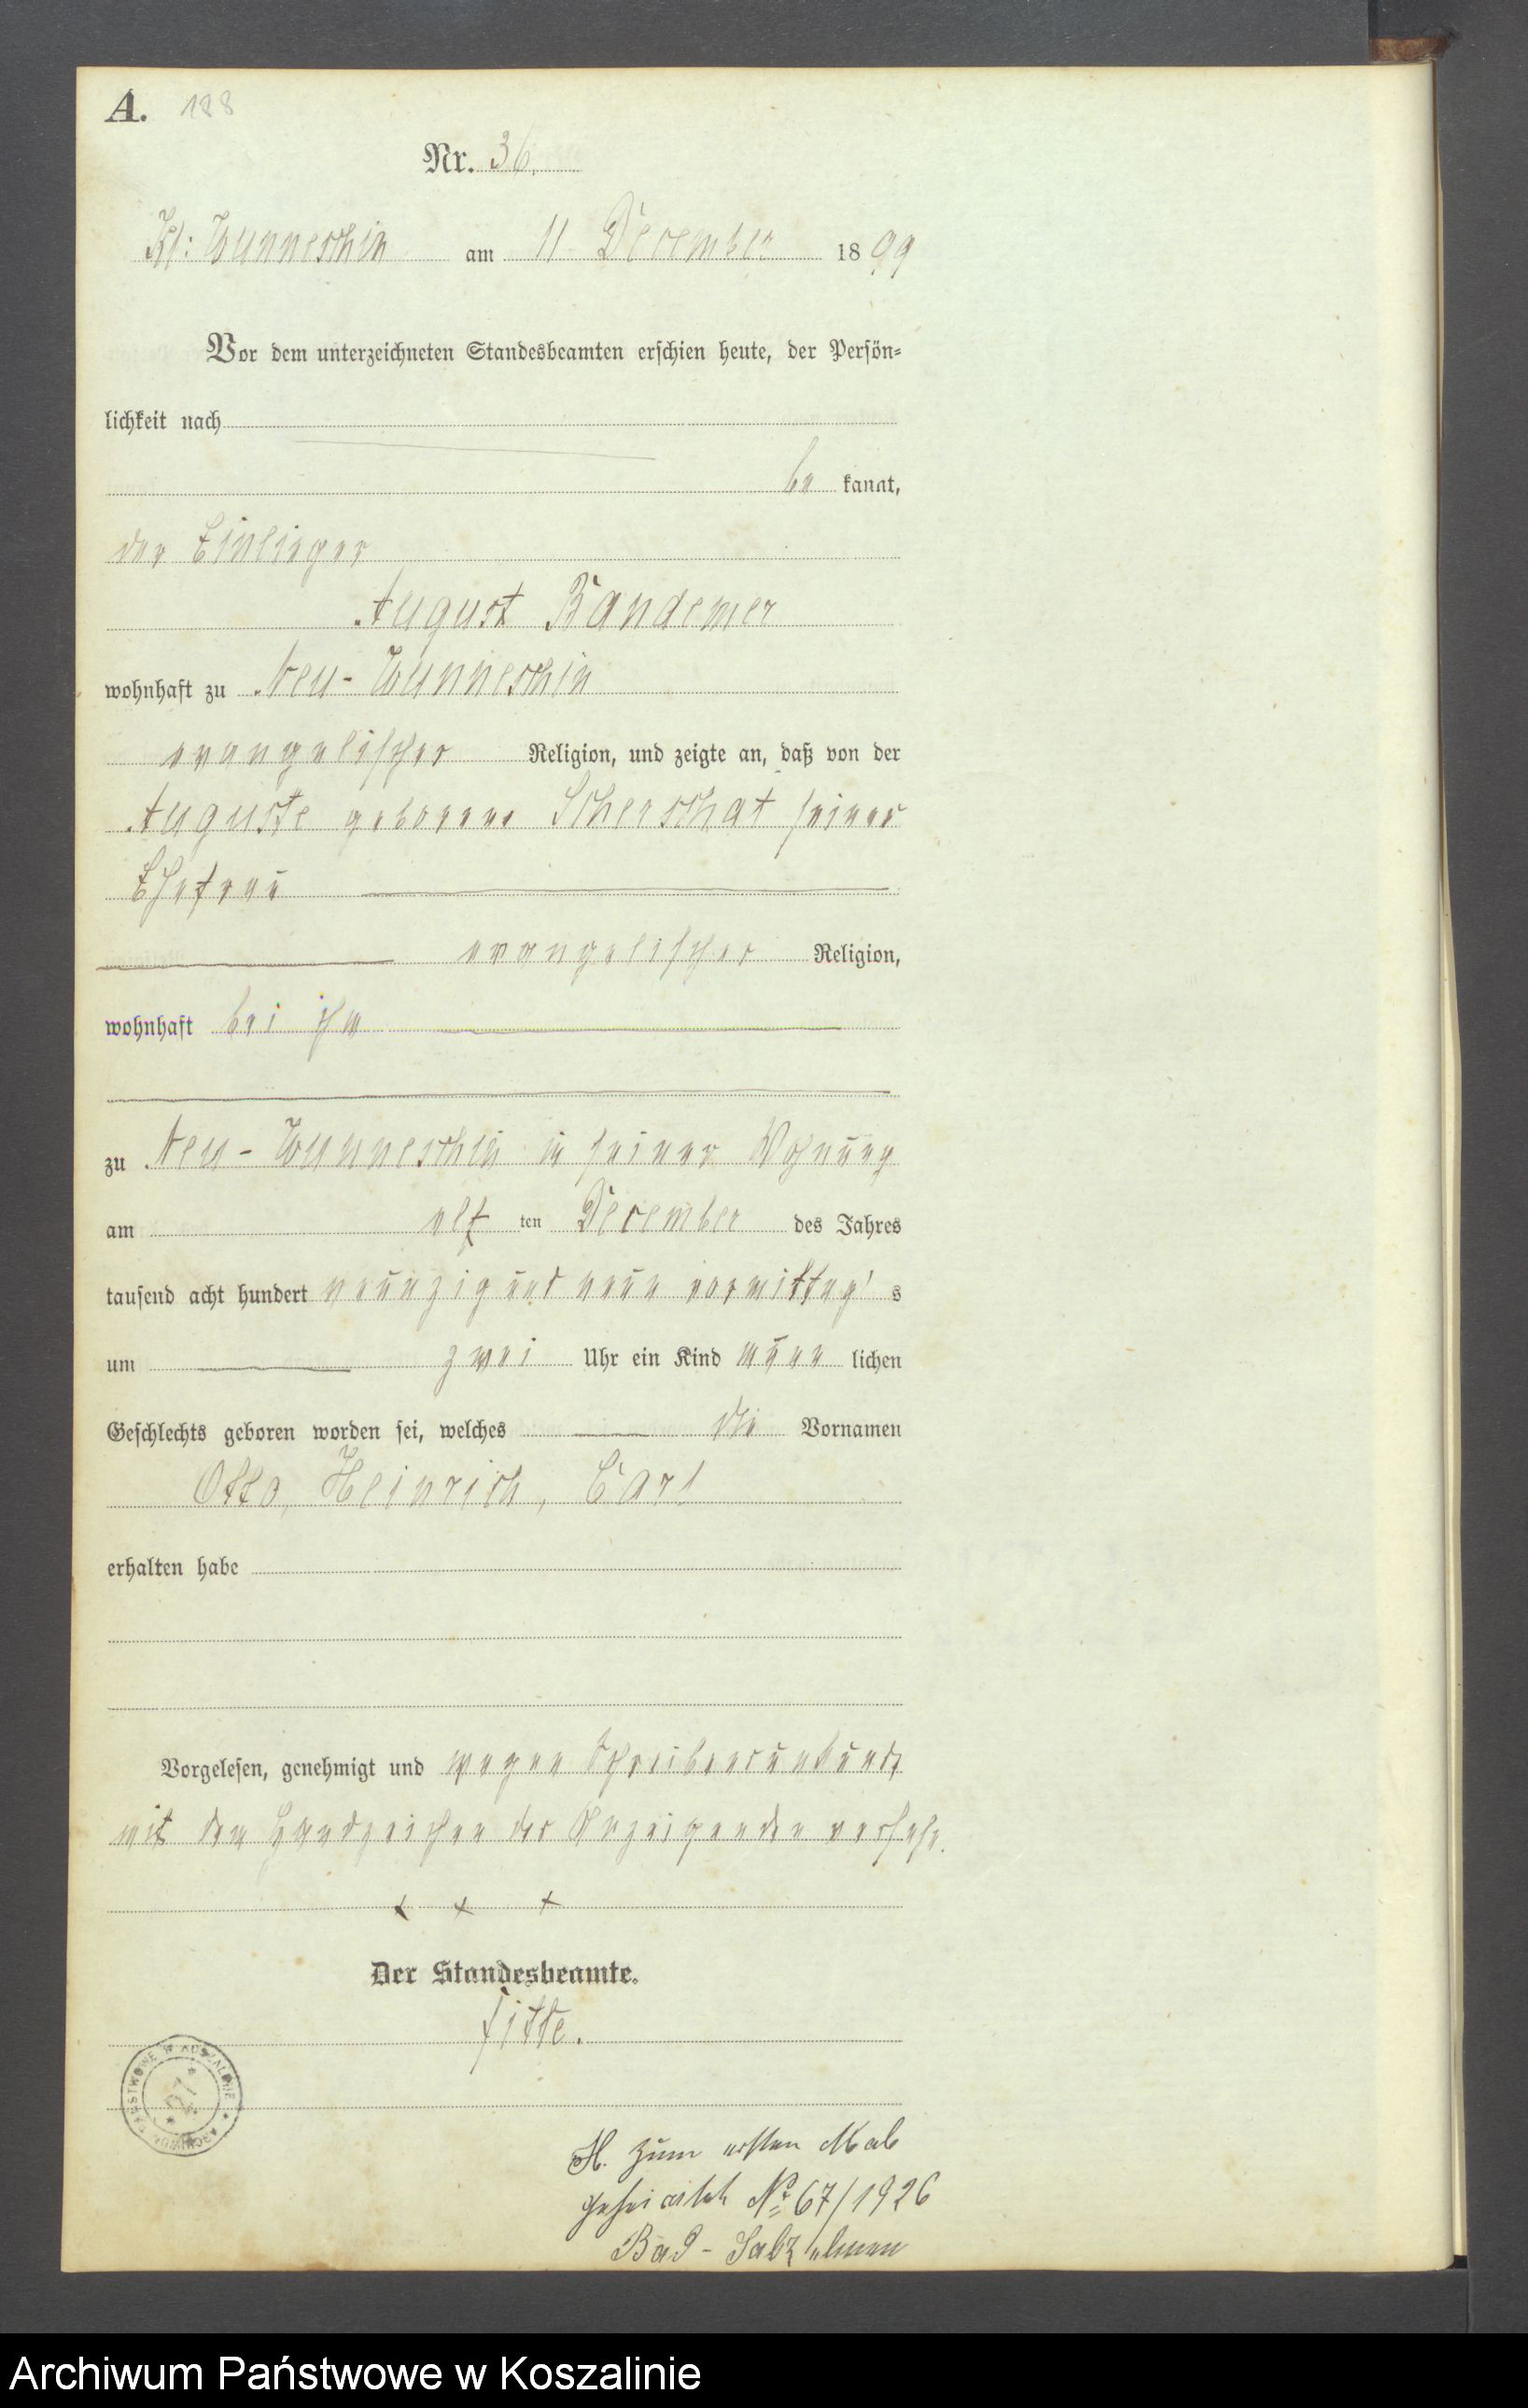 A. 188
Nr. 36.
Kl: Wunneschin am 11 December 1899
Vor dem unterzeichneten Standesbeamten erschien heute, der Persön=
lichkeit nach
be kannt,
der Einlieger
August Bandemer
wohnhaft zu Neu-Wunneschin
evangelischer Religion, und zeigte an, daß von der
Auguste geborene Scherschat seiner
Ehefrau
evangelischer Religion,
wohnhaft bei ihm
zu Neu-Wunneschin in seiner Wohnung
am elf ten December des Jahres
tausend acht hundert neunzig und neun vormittag's
um zwei Uhr ein Kind männ lichen
Geschlechts geboren worden sei, welches die Vornamen
Otto, Heinrich, Carl
erhalten habe
Vorgelesen, genehmigt und wegen Schreibensunkunde
mit den Handzeichen des Anzeigenden versehe.
+ + +
Der Standesbeamte.
Titte.
ARCHIWUM PAŃSTWOWE W KOSZALINIE
27
H. zum ersten Mal
geheiratet № 67/1926
Bad-Salzelmen
Archiwum Państwowe w Koszalinie